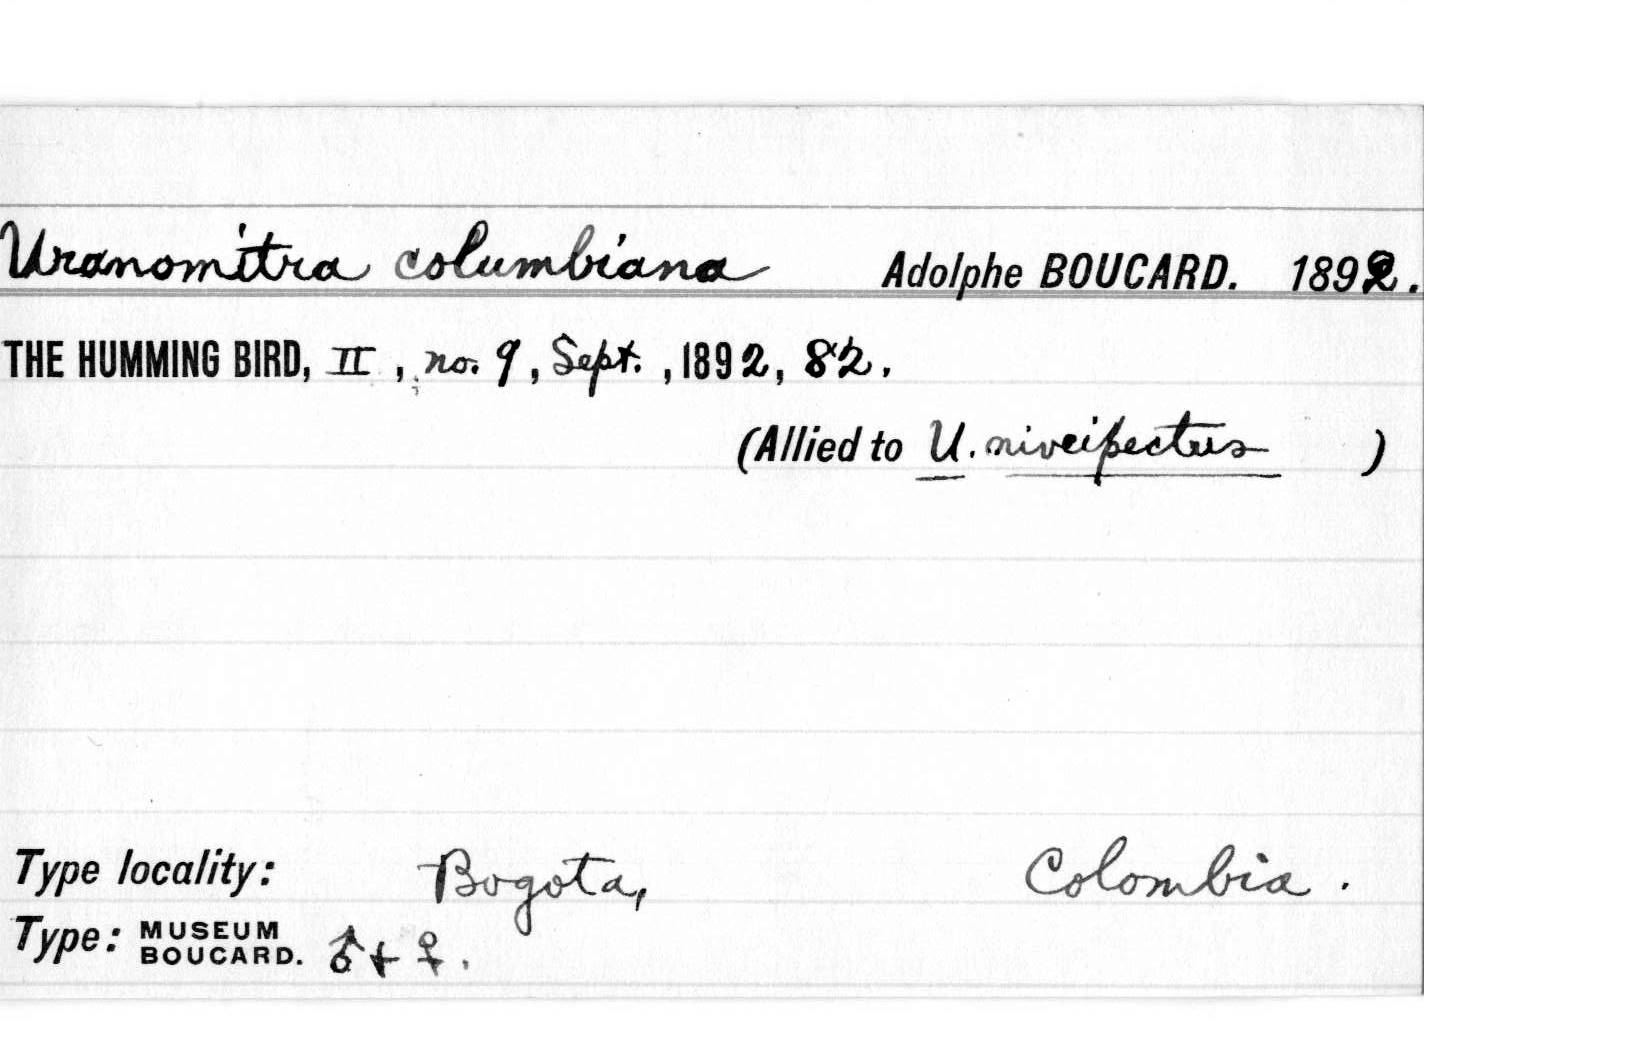 Uranomitra columbiana Adolphe BOUCARD. 1892.
THE HUMMING BIRD, II, no. 9, Sept., 1892, 82.
(Allied to U. niveipectus )
Type locality: Bogota, Colombia.
Type: MUSEUM BOUCARD. ♂ + ♀.